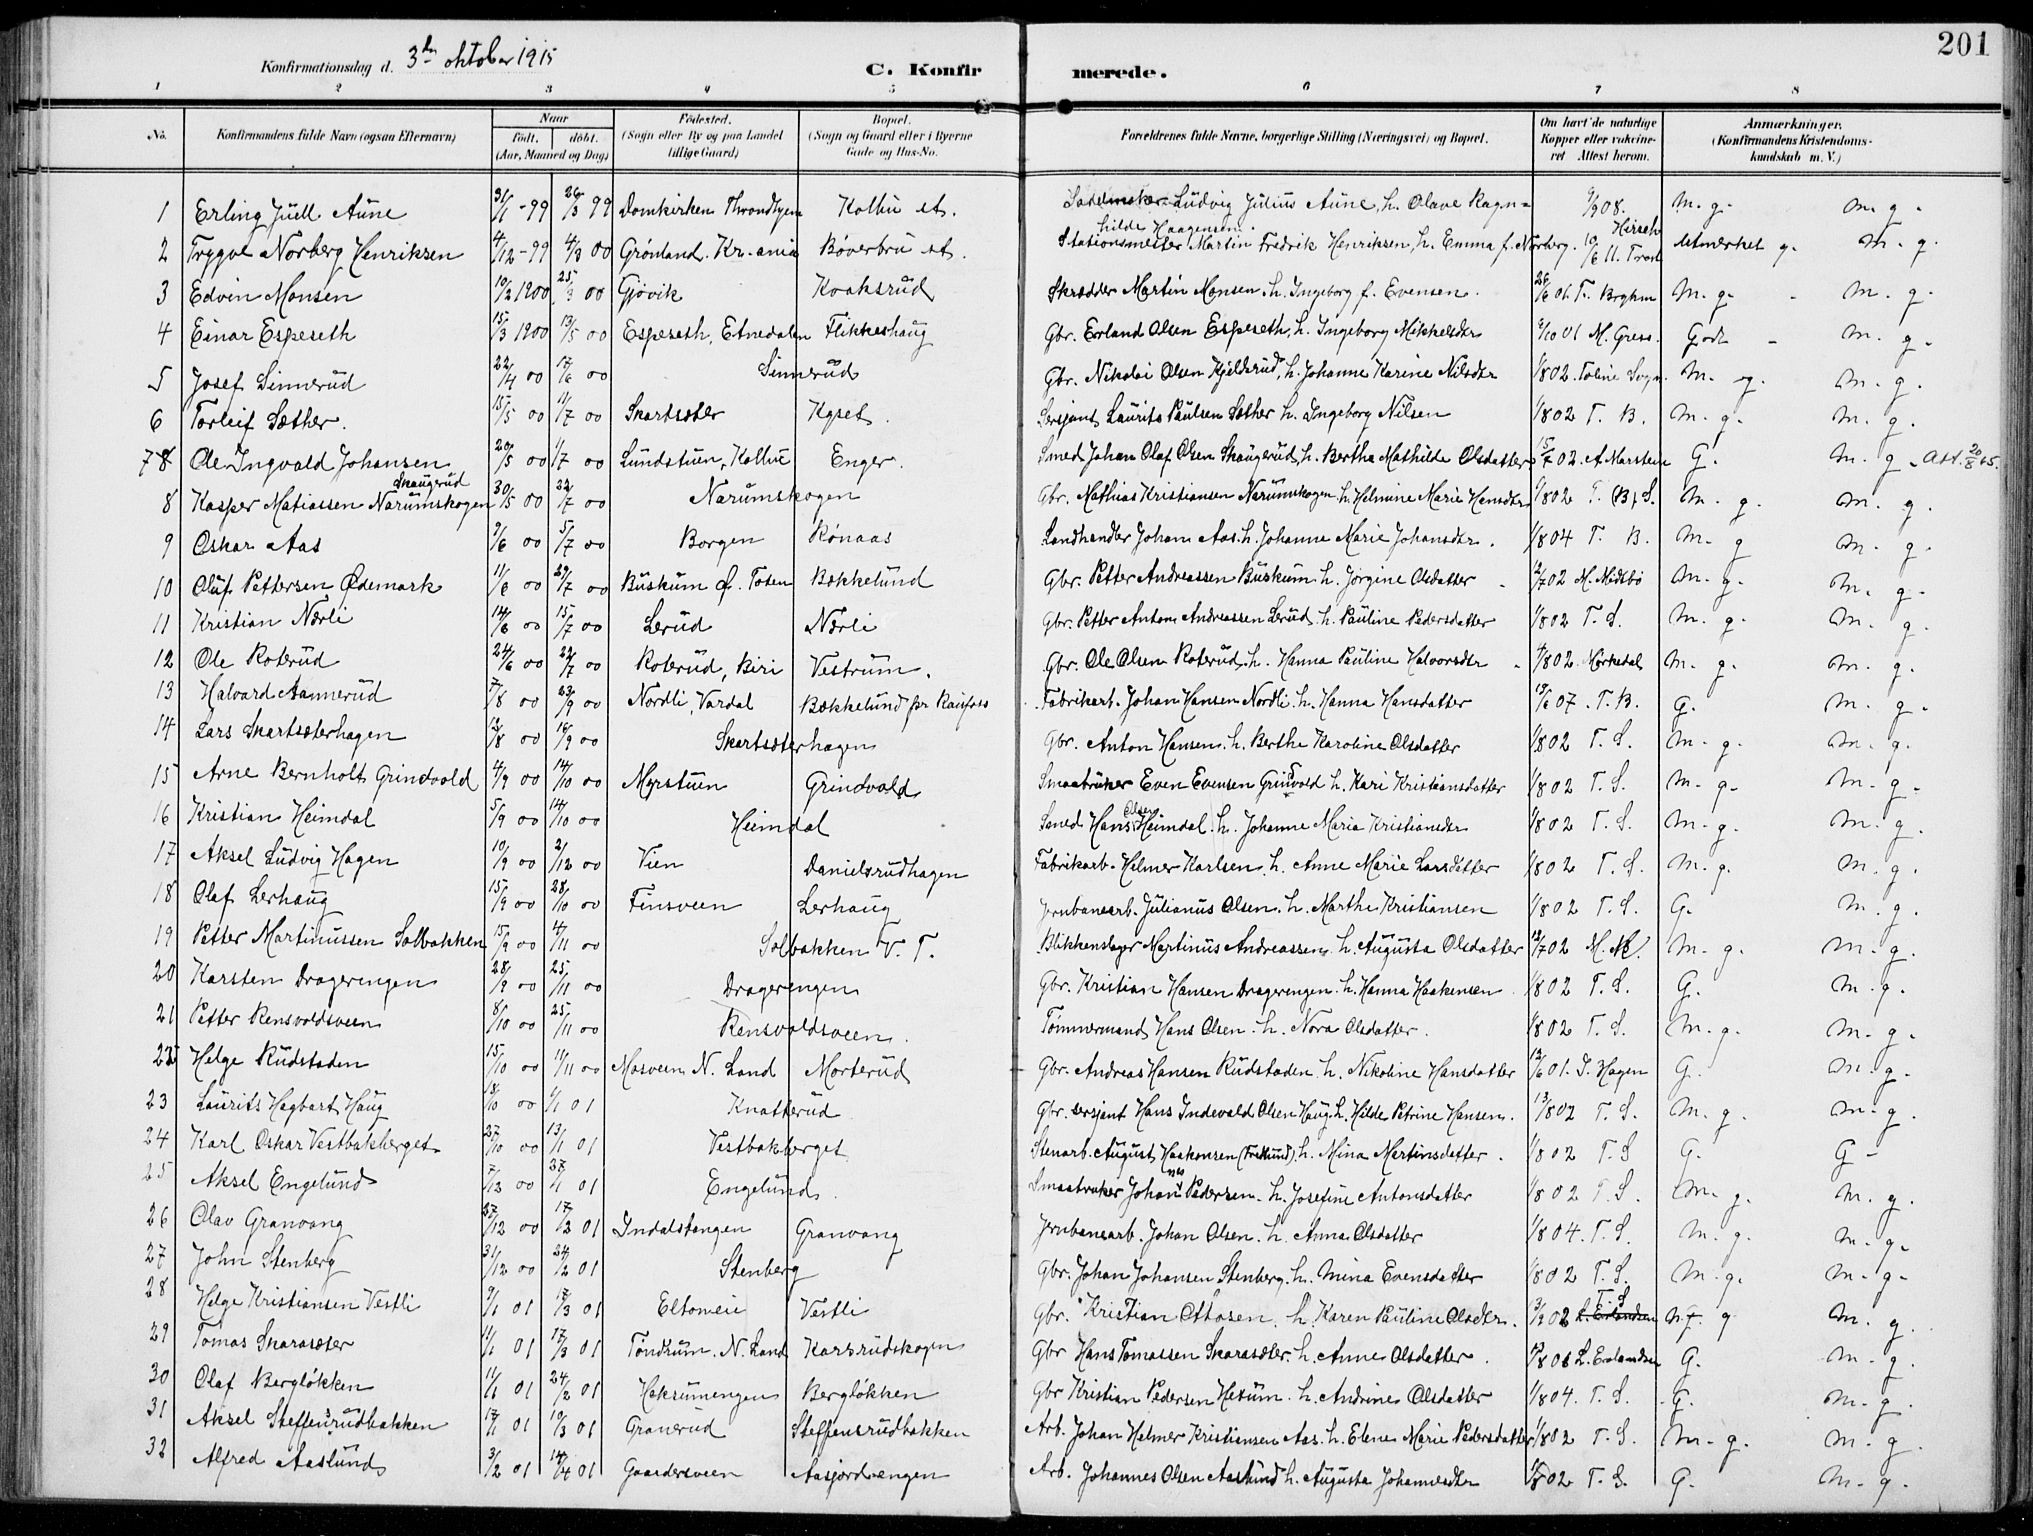 Konfirmationsdag d. 3die oktober 1915
C. Konfirmerede.
201
1 2 3 4 5 6 7 8
No. Konfirmandens fulde Navn (ogsaa Efternavn) Naar født. døbt. (Aar, Maaned og Dag) Fødested. (Sogn eller By og paa Landet tillige Gaard) Bopæl. (Sogn og Gaard eller i Byerne Gade og Hus-No. Forældrenes fulde Navne, borgerlige Stilling (Næringsvei) og Bopæl. Om havt de naturlige Kopper eller vaksineret Attest herom. Anmærkninger. (Konfirmandens Kristendomskundskab m. V.)
1 Erling Juell Aune 31/1 -99 26/3 99 Domkirken Throndhjem Kolbu st. Sadelmaker Ludvig Julius Aune, h. Olave Ragnhilde Haagensen. 9/9 08. Hirsch m. g. m. g.
2 Trygve Norberg Henriksen 4/12 -99 4/3 00 Grønland. Kr.ania Bøverbru st. Stationsmester Martin Fredrik Henriksen, h. Emma f. Norberg. 10/6 11. Utmerket g. m. g.
3 Edvin Monsen 10/2 1900 25/3 00 Gjøvik Kraaksrud Skrædder Martin Monsen h. Ingeborg f. Evensen. 26/6 01. T. m. g. m. g.
4 Einar Espeseth 15/3 1900 13/5 00 Espeseth, Etnedalen Flikkeshaug Gbr. Erland Olsen Espeseth, h. Ingeborg Mikkelsdtr 9/10 01 M. Gress. Godt m. g.
5 Josef Sinnerud 22/4 00 17/6 00 Sinnerud Gbr. Nikolai Olsen Kjeldsrud, h. Johanne Karine Nilsdtr 1/8 02. m. g. m. g.
6 Torleif Sæther. 15/5 00 11/7 00 Skartsæter Kyset. Sersjant Laurits Paulsen Sæther h. Ingeborg Nilsen 1/8 02 T. B. m. g. m. g.
7 8 Ole Ingvald Johansen Skaugerud 20/5 00 1/7 00 Lundstuen, Kolbu Enger. Smed Johan Olaf Olsen Skaugerud, h. Bertha Mathilde Olsdatter 15/7 02. A. Marstein G. m. g. Att. 20/8 65.
8 Kasper Matiassen Narumskogen 30/5 00 22/7 00 Narumskogen Gbr. Mathias Kristiansen Narumskogen h. Helmine Marie Hansdtr 1/8 02 T. (B) S. m. g. m. g.
9 Oskar Aas 9/6 00 5/7 00 Borgen Rønaas Landhandler Johan Aas. h. Johanne Marie Johansdtr. 1/8 04 T. B. m. g m. g.
10 Oluf Pettersen Ødemark 11/6 00 29/7 00 Buskum Ø. Toten Bækkelund Gbr. Petter Andreassen Buskum h. Jørgine Olsdatter 12/7 02 M. Mødsbø m. g. m. g.
11 Kristian Nærli 14/6 00 15/7 00 Lerud Nærli Gbr. Petter Anton Andreassen Lerud. h. Pauline Pedersdatter 1/8 02 T. S. m. g. m. g.
12 Ole Roterud 24/6 00 22/7 00 Roterud, Biri Vestrum. Gbr. Ole Olsen Roterud, h. Hanna Pauline Halvorsdtr 4/8 02. Mørkedal m. g. m. g.
13 Halvard Aannerud 7/8 00 23/9 00 Nordli, Vardal Bækkelund pr Raufoss Fabrikarb. Johan Hansen Nordli h. Hanna Hansdatter 19/6 07. T. B. G. m. g.
14 Lars Skartsæterhagen 12/8 00 16/9 00 Skartsæterhagen Gbr. Anton Hansen. h. Berthe Karoline Olsdatter 1/8 02 T. S. m. g. m. g.
15 Arne Bernholt Grindvold 4/9 00 14/10 00 Myrstuen Grindvold Smaabruker Even Evensen Grindvold h. Kari Kristiansdatter 1/8 02 T. S. m. g. m. g.
16 Kristian Heimdal 5/9 00 14/10 00 Heimdal Smed Hans Olsen Heimdal. h. Johanne Maria Kristiansdtr 1/8 02 T. S. m. g. m. g.
17 Aksel Ludvig Hagen 10/9 00 2/12 00 Vien Danielsrudhagen Fabrikarb. Helmer Karlsen h. Anne Marie Larsdatter 1/8 02 T. S. m. g. m. g.
18 Olaf Lerhaug 15/9 00 28/10 00 Finsveen Lerhaug Jernbanearb. Julianus Olsen. h. Marthe Kristiansen 1/8 02 T. S. G. m. g.
19 Petter Martinussen Solbakken 15/9 00 4/11 00 Solbakken V. T. Blikkenslager Martinus Andreassen. h. Augusta Olsdatter 12/7 02 M. M. m. g. m. g.
20 Karsten Dragerengen 28/9 00 25/11 00 Dragerengen Gbr. Kristian Hansen Dragerengen. h. Hanna Haakensen 1/8 02 T. S. G. m. g.
21 Petter Rensvoldsveen 8/10 00 25/11 00 Rensvoldsveen. Tømmermand Hans Olsen. h. Nora Olsdatter. 1/8 02 T. S. m. g. m. g.
22 Helge Rudstaden 15/10 00 11/11 00 Mosveen N. Land Morterud Gbr. Andreas Hansen Rudstaden. h. Nikoline Hansdatter 12/6 01. S. Hagen G. m. g.
23 Laurits Hagbart Haug 18/10 00 1/1 01 Knatterud Gbr. sersjant Hans Indevald Olsen Haug h. Hilde Petrine Hansen. 13/8 02 T. S. m. g. m. g.
24 Karl Oskar Vestbakberget 27/10 00 13/1 01 Vestbakberget Stenarb. August Haakonsen (Frøslund). h. Mina Martinsdatter. 1/8 02 T. S G. G
25 Aksel Engelund 7/12 00 27/1 01 Engelund. Smaabruker Johannes Pedersen. h. Josefine Antonsdatter 1/8 02 T. S. m. g. m. g.
26 Olav Granvang 27/12 00 17/2 01 Indalstangen Granvang Jernbanearb. Johan Olsen. h. Anna Olsdatter 1/8 04. T. S. m. g. m. g.
27 John Stenberg 31/12 00 24/2 01 Stenberg Gbr. Johan Johansen Stenberg. h. Mina Evensdatter 1/8 02 T. S. m. g. m. g.
28 Helge Kristiansen Vestli 9/1 01 17/3 01 Eltoneie Vestli Gbr. Kristian Ottosen. h. Karen Pauline Olsdtr. 13/9 02 L. Erlandsen T. S m. g m. g.
29 Tomas Skarasæter 11/1 01 17/3 01 Tøndrum. N. Land Karsrudskogen Gbr Hans Tomassen Skarasæter. h. Anne Olsdatter. 12/8 01 L. Erlandsen G. m. g.
30 Olaf Bergløkken 11/1 01 24/2 01 Heksumengen Bergløkken Gbr Kristian Pedersen Hexum. h. Andrine Olsdatter 1/8 04. T. S. G. m. g.
31 Aksel Steffensrudbakken 17/1 01 10/3 01 Granerud Steffensrudbakken Arb. Johan Helmer Kristiansen Aas. h. Elene Marie Pedersdatter 1/8 02 T. S. m. g. m. g.
32 Alfred Aaslund 3/2 01 14/4 01 Gaardersveen Aasjordsengen Arb. Johannes Olsen Aaslund h. Augusta Johannesdtr 1/8 02 T. S. G. m. g.